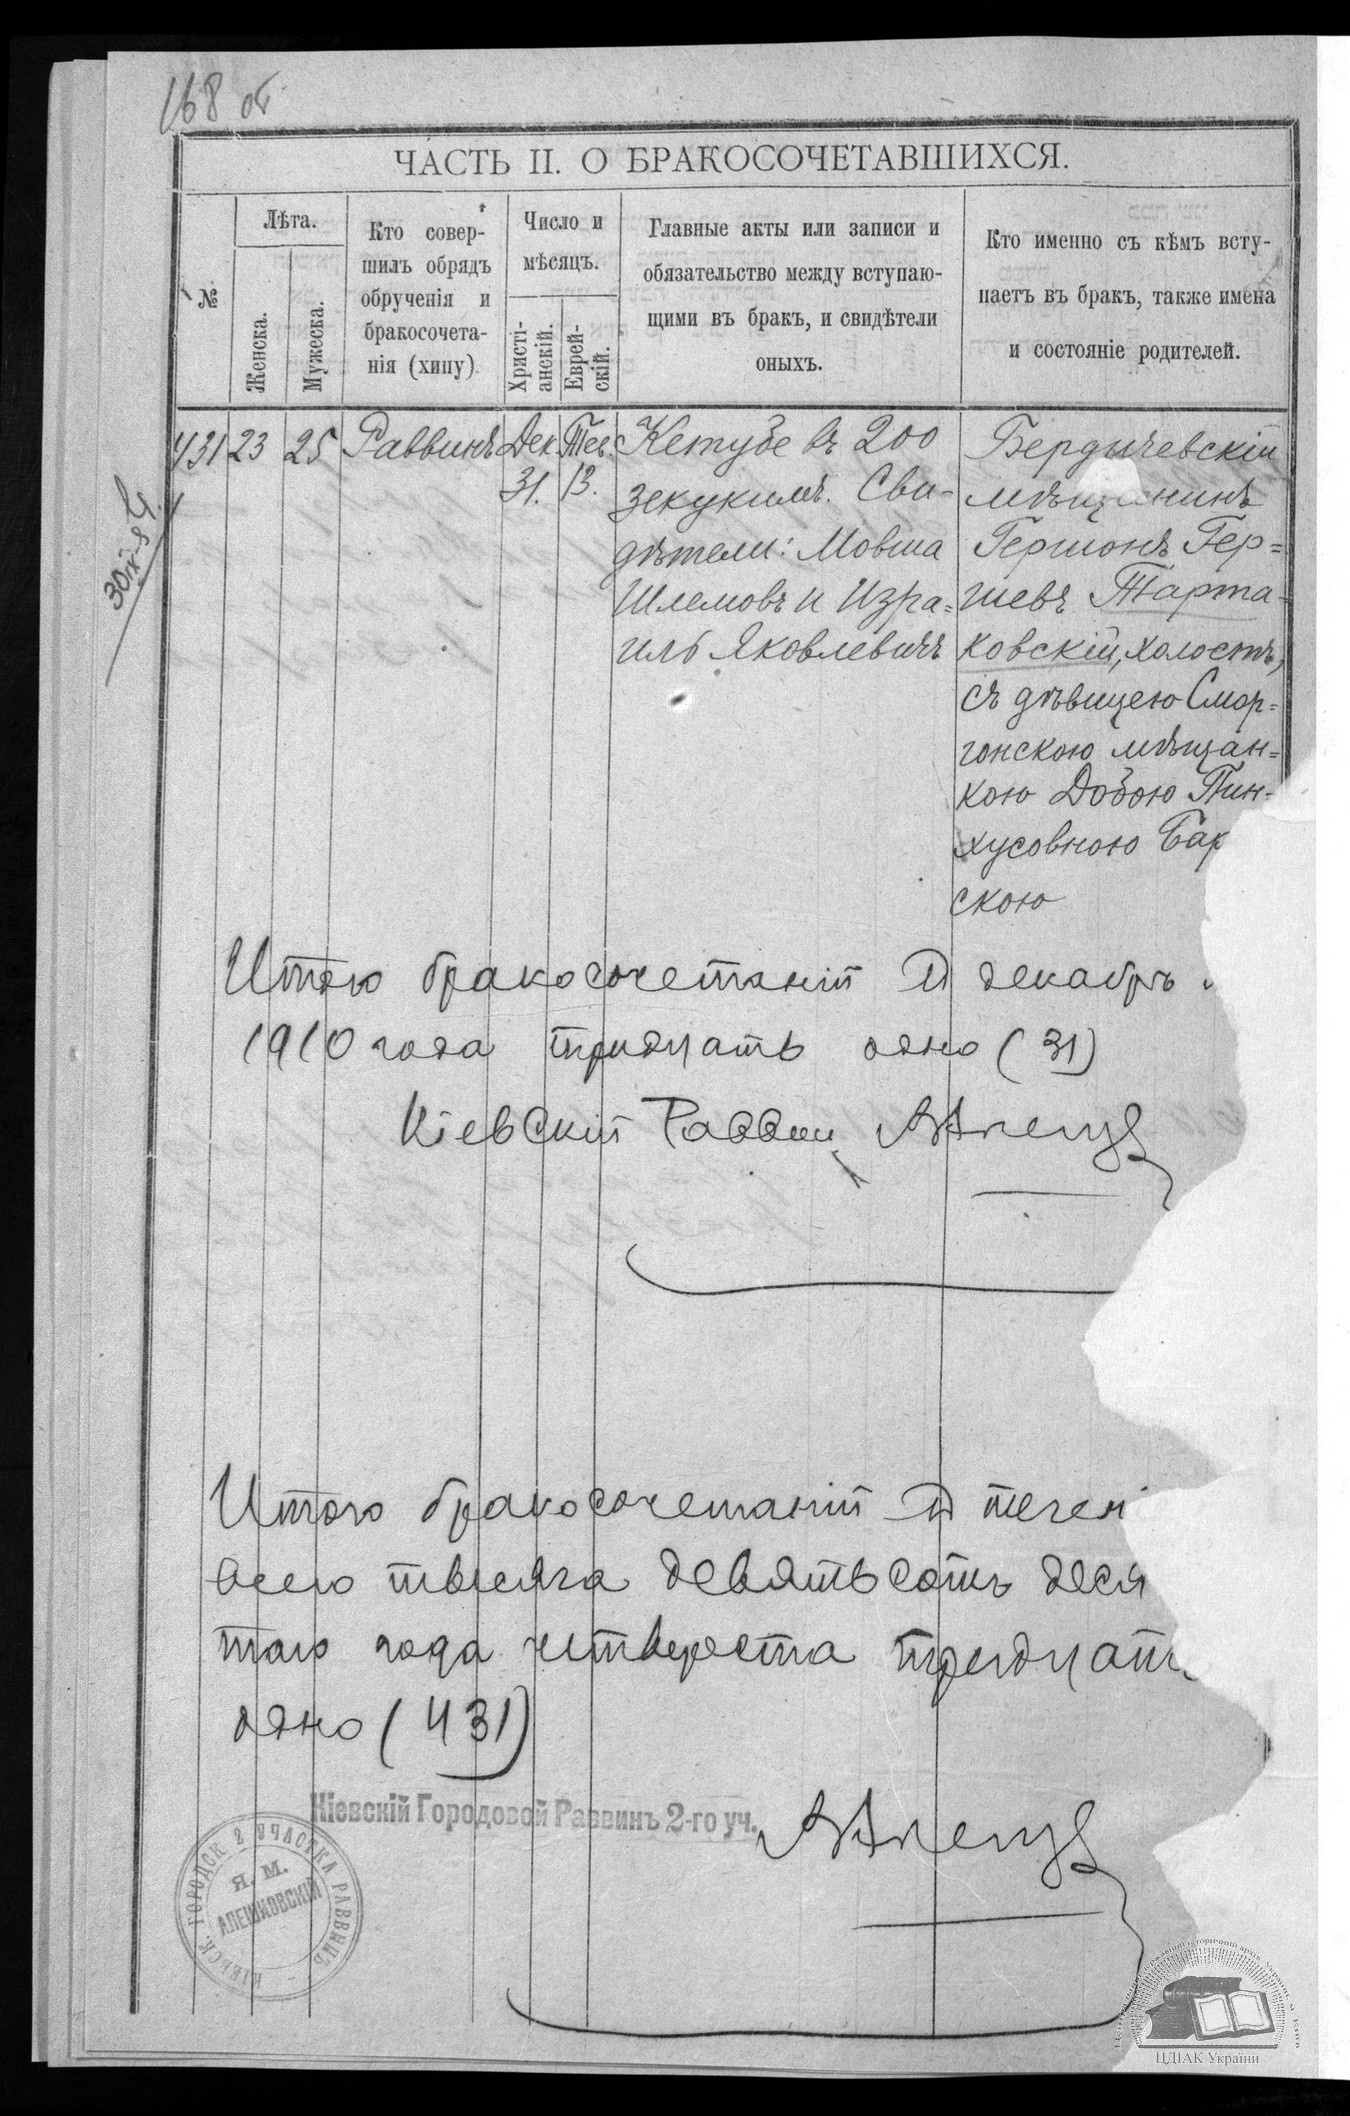 168 об
ЧАСТЬ II. О БРАКОСОЧЕТАВШИХСЯ.
№
Лѣта.
Женска.
Мужеска.
Кто совер-
шилъ обрядъ
обрученія и
бракосочета-
нія (хипу)
Число и
мѣсяцъ.
Христі-
анскій.
Еврей-
скій.
Главные акты или записи и
обязательство между вступаю-
щими въ бракъ, и свидѣтели
оныхъ.
Кто именно съ кѣмъ всту-
паетъ въ бракъ, также имена
и состояніе родителей.
431 23 25 Раввинъ Дек. 31. Тев. 13.
Кетубе въ 200
зекукимъ. Сви-
дѣтели: Мовша
Шлемовъ и Изра=
иль Яковлевичъ
Бердичевскій
мѣщанинъ
Гершонъ Гер=
шевъ Тарта=
ковскій, холостъ,
съ дѣвицею Смор=
гонскою мѣщан=
кою Добою Пин=
хусовною Бар
скою
Итого бракосочетаній въ декабрѣ
1910 года тридцать одно (31)
Кіевскій Раввин
Итого бракосочетаній въ течені
всего тысяча девятьсотъ деся
таго года четыреста тридцать
одно (431)
Кіевскій Городовой Раввинъ 2-го уч.
КІЕВСК. ГОРОДСК. 2 УЧАСТКА РАВВИНЪ
Я. М.
АЛЕШКОВСКІЙ
ЦДІАК України